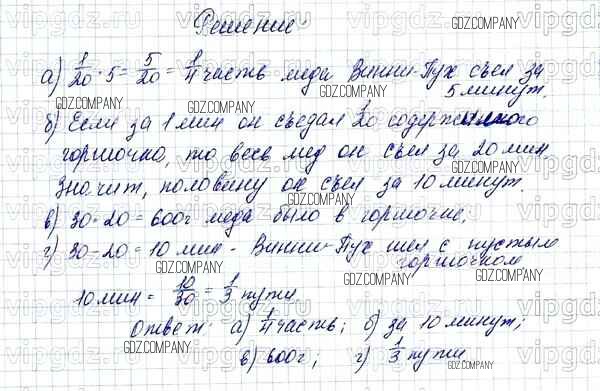 Решение
а) 1/20 · 5 = 5/20 = 1/4 часть меда Винни-Пух съел за
5 минут.
б) Если за 1 мин он съедал 1/20 содержимого
горшочка, то весь мед он съел за 20 мин
Значит, половину он съел за 10 минут.
в) 30 · 20 = 600 г меда было в горшочке.
г) 30 - 20 = 10 мин - Винни-Пух шел с пустым
горшочком
10 мин = 10/30 = 1/3 пути
Ответ: а) 1/4 часть; б) за 10 минут;
в) 600 г; г) 1/3 пути
GDZ.COMPANY
GDZ.COMPANY
GDZ.COMPANY
GDZ.COMPANY
GDZ.COMPANY
GDZ.COMPANY
GDZ.COMPANY
GDZ.COMPANY
GDZ.COMPANY
GDZ.COMPANY
GDZ.COMPANY
vipgdz.ru